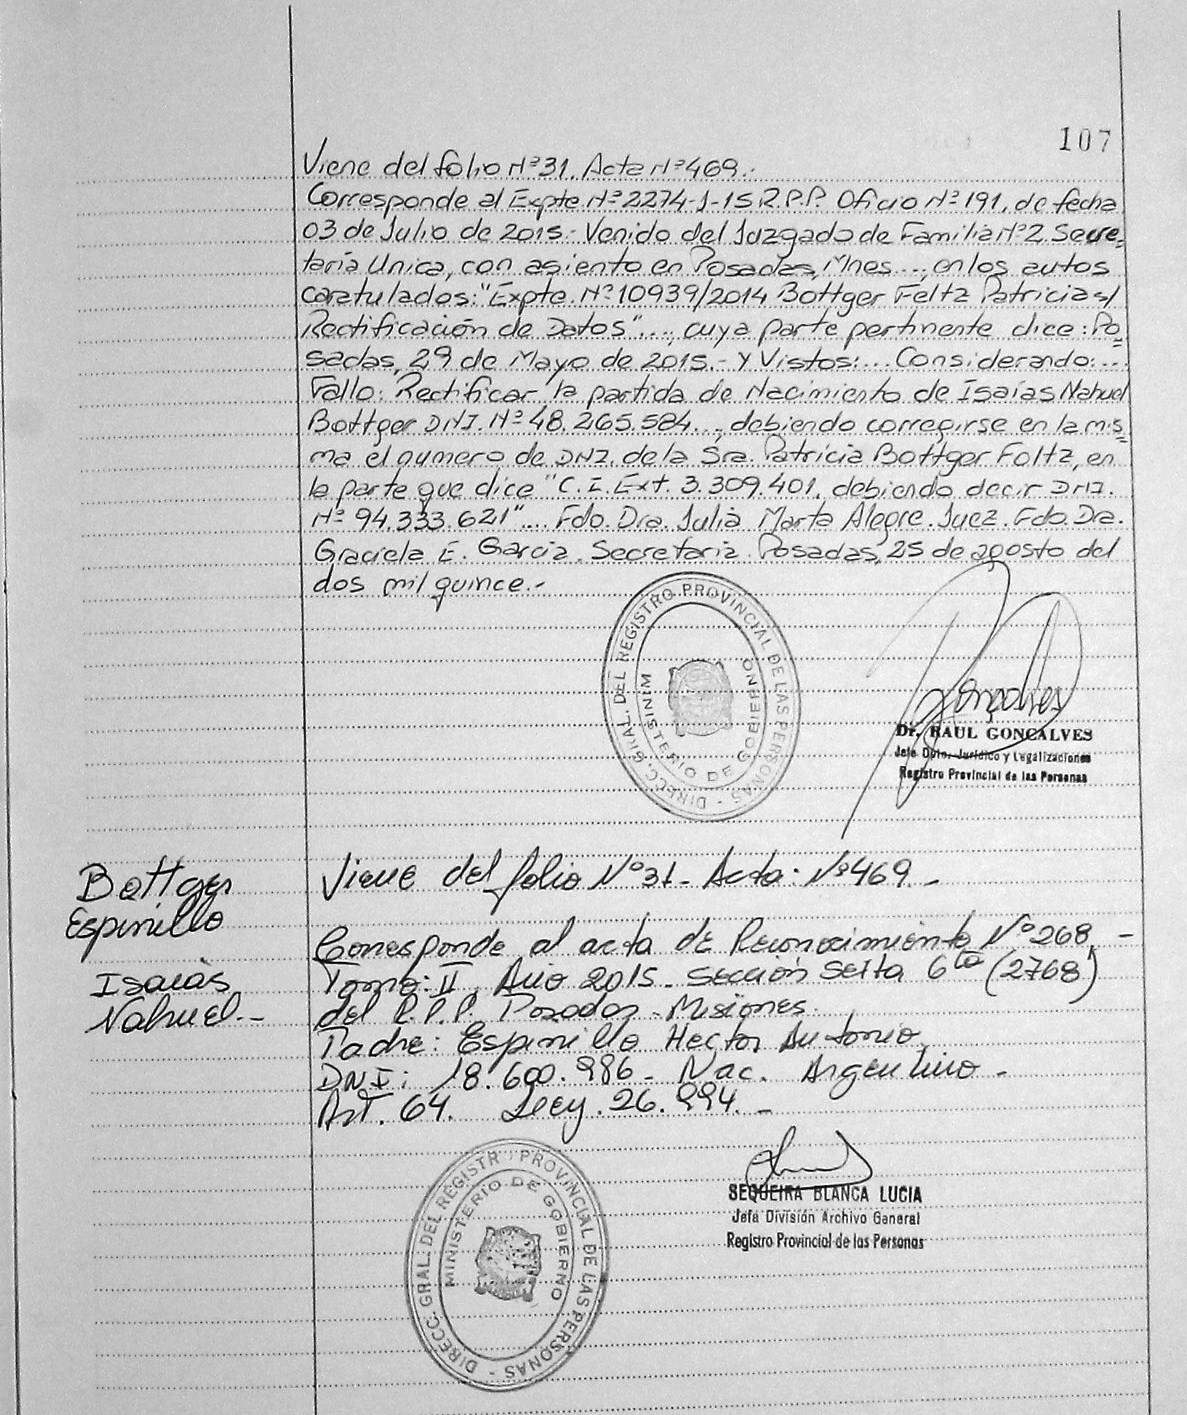 107
Viene del folio Nº31. Acta Nº469.-
Corresponde al Expte. Nº2274-J-15 R.P.P. Oficio Nº191, de fecha
03 de Julio de 2015.- Venido del Juzgado de Familia Nº2, Secre=
taría Unica, con asiento en Posadas, Mnes..., en los autos
caratulados: "Expte. Nº10939/2014 Bottger Feltz Patricia s/
Rectificación de Datos"..., cuya parte pertinente dice: Po
sadas, 29 de Mayo de 2015.- Y Vistos:... Considerando:...
Fallo: Rectificar la partida de Nacimiento de Isaías Nahuel
Bottger DNI. Nº48.265.584..., debiendo corregirse en la mis=
ma el numero de DNI. de la Sra. Patricia Bottger Foltz, en
la parte que dice "C.I. Ext. 3.309.401, debiendo decir DNI.
Nº 94.333.621"... Fdo. Dra. Julia Marta Alegre. Juez. Fdo. Dra.
Graciela E. García. Secretaria. Posadas, 25 de agosto del
dos mil quince.-
DIRECC. GRAL. DEL REGISTRO PROVINCIAL DE LAS PERSONAS -
MINISTERIO DE GOBIERNO
Gonçalves
Dr. RAUL GONCALVES
Jefe Dpto. Jurídico y Legalizaciones
Registro Provincial de las Personas
Bottger
Espinillo
Isaías
Nahuel.-
Viene del folio Nº31- Acta: Nº469.-
Corresponde al acta de Reconocimiento Nº268 -
Tomo: II, Año 2015. Sección Sexta 6ta (2768)
del R.P.P. Posadas - Misiones.
Padre: Espinillo Hector Antonio.
DNI: 18.600.986- Nac. Argentino -
Art. 64. Ley. 26.994.-
DIRECC. GRAL. DEL REGISTR PROVINCIAL DE LAS PERSONAS -
MINISTERIO DE GOBIERNO
SEQUEIRA BLANCA LUCIA
Jefa División Archivo General
Registro Provincial de las Personas